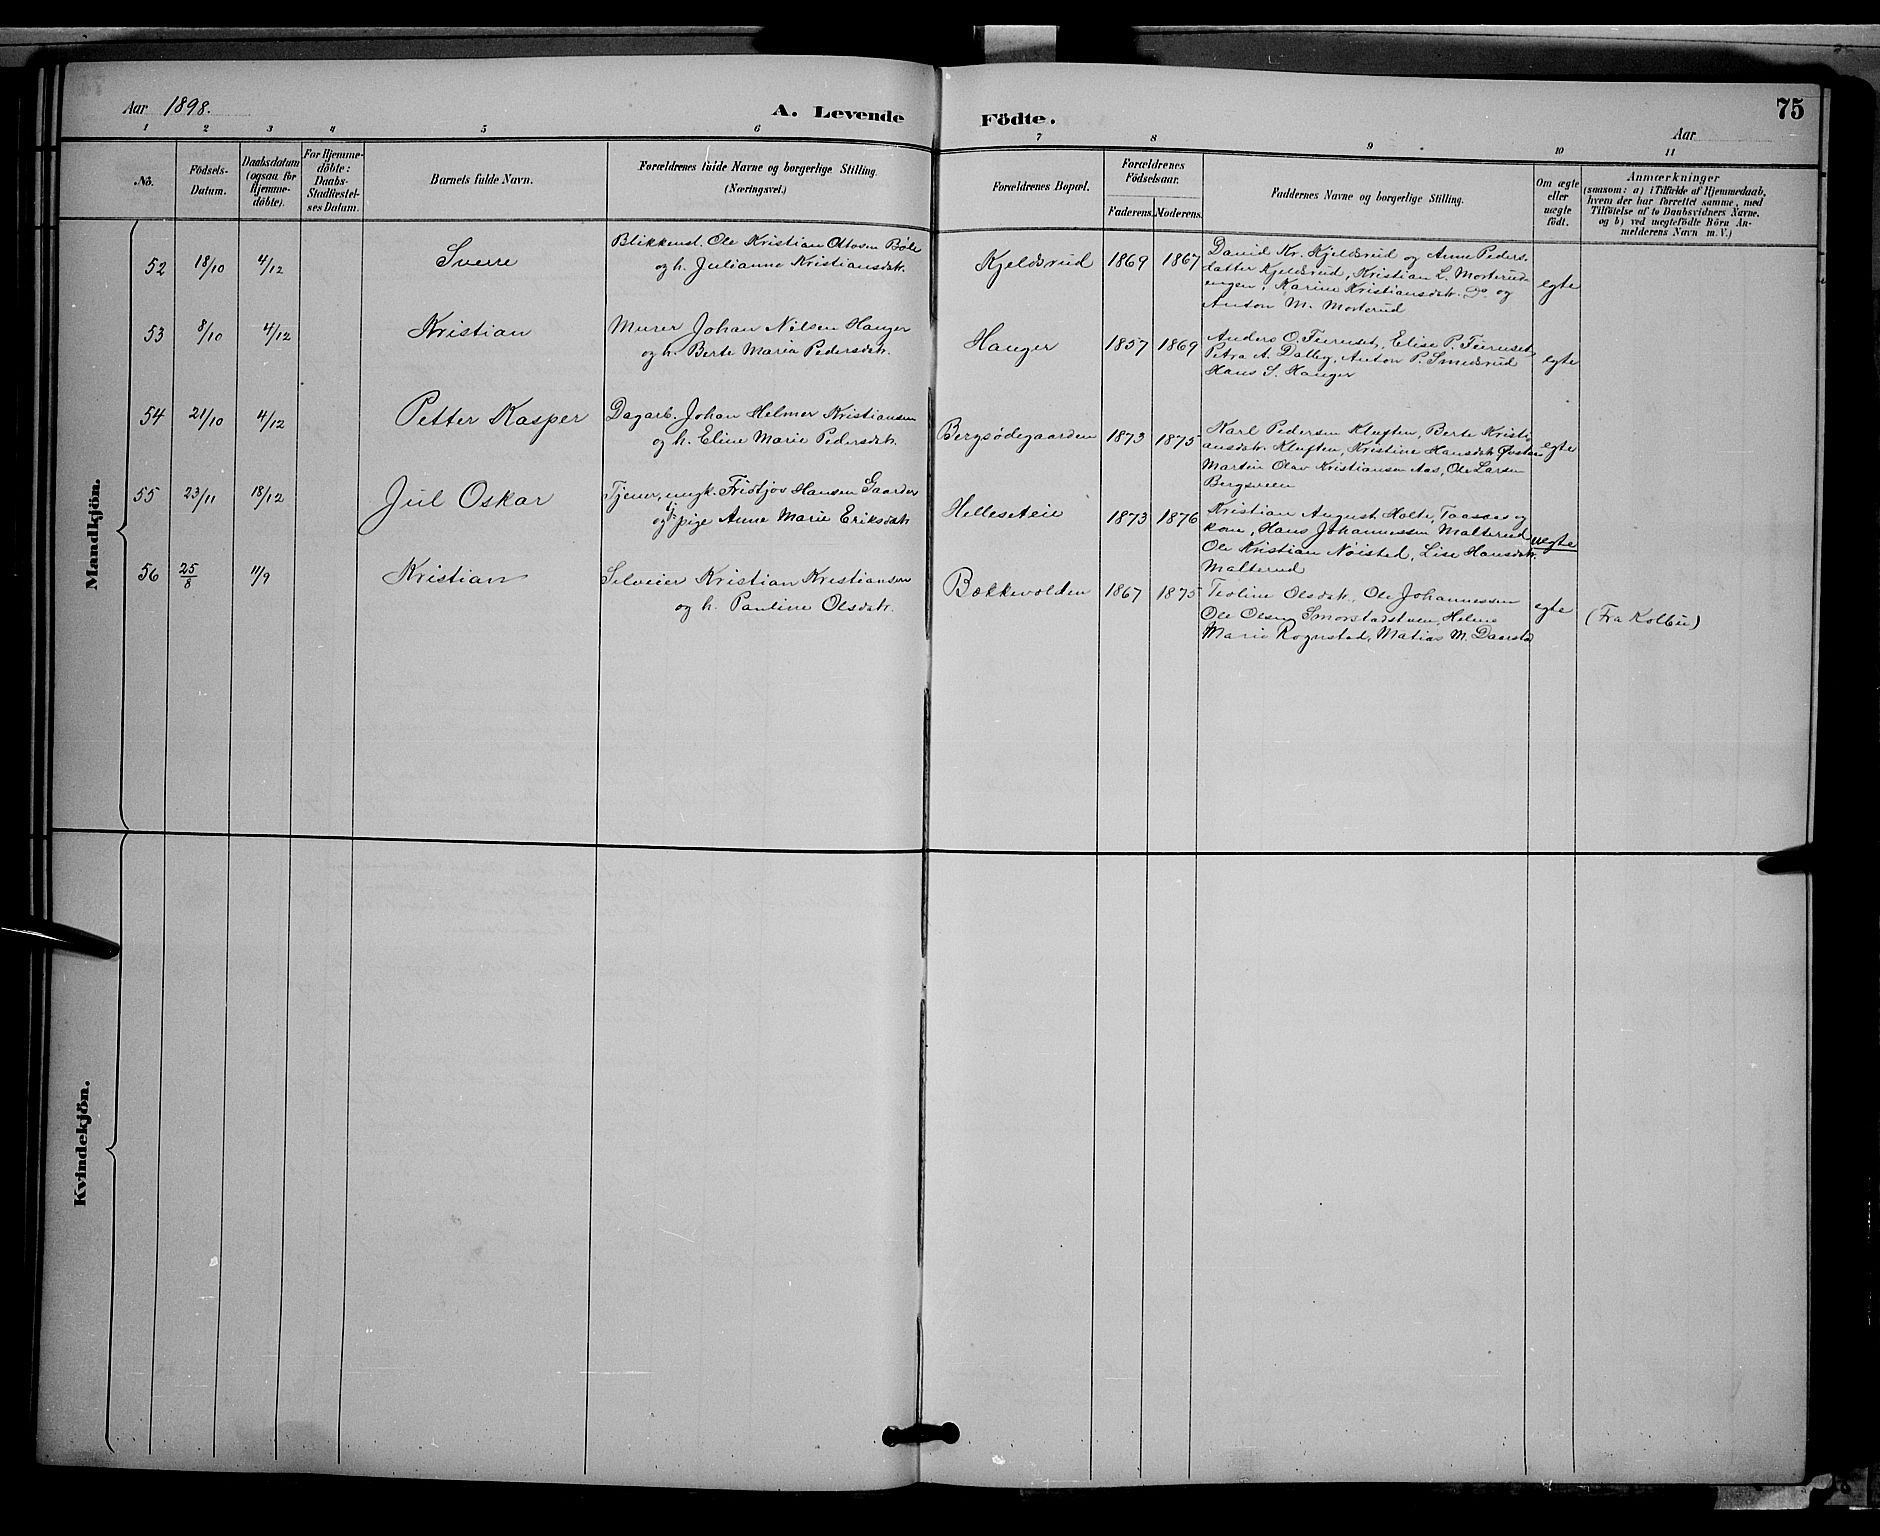 Aar 1898.
A. Levende Födte.
75
Aar
1 2 3 4 5 6 7 8 9 10 11
No.
Födsels-Datum.
Daabsdatum (ogsaa for Hjemme-döbte).
For Hjemme-döbte: Daabs-Stadfæstel-ses Datum.
Barnets fulde Navn.
Forældrenes fulde Navne og borgerlige Stilling. (Næringsvei.)
Forældrenes Bopæl.
Forældrenes Födselsaar.
Faderens. Moderens.
Faddernes Navne og borgerlige Stilling.
Om ægte eller uægte födt.
Anmærkninger
(saasom: a) i Tilfælde af Hjemmedaab, hvem der har forrettet samme, med Tilföielse af to Daabsvidners Navne. og b) ved uægtefödte Börn An-melderens Navn m. V.)
Mandkjön.
52 18/10 4/12 Sverre
Blikkensl. Ole Kristian Ottosen Böle
og h. Julianne Kristiansdtr.
Kjeldsrud 1869 1867
David Kr. Kjeldsrud og Anne Peders-
datter Kjeldsrud, Kristian L. Morterud-
engen, Karine Kristiansdtr. Do og
Anton M. Morterud
egte
53 8/10 4/12 Kristian
Murer Johan Nilsen Hanger
og h. Berte Maria Pedersdtr.
Hanger 1857 1869
Anders O. Furuset, Elise P. Furuset,
Petra A. Dalby, Anton P. Smedsrud
Hans S. Hanger
egte
54 21/10 4/12 Petter Kasper
Dagarb. Johan Helmer Kristiansen
og h. Eline Marie Pedersdtr.
Bergsödegaarden 1873 1875
Karl Pedersen Kluften, Berte Kristi-
ansdtr. Kluften, Kristine Hansdtr.
Martin Olav Kristiansen Aas, Ole Larsen
Bergsveen
egte
55 23/11 18/12 Jul Oskar
Tjener, ungk. Fridtjov Hansen Gaarder
og pige Anne Marie Eriksdtr.
Helleseteie 1873 1876
Kristian August Holte,
kone, Hans Johannessen Malterud
Ole Kristian Nöisted, Lise Hansdtr.
Malterud
uegte
56 25/8 11/9 Kristian
Selveier Kristian Kristiansen
og h. Pauline Olsdtr.
Bækkevolden 1867 1875
Teoline Olsdtr., Ole Johannessen
Ole Olsen Smörstadstuen, Helene
Marie Rognstad, Matias M. Daarstad
egte
(Fra Kolbu)
Kvindekjön.